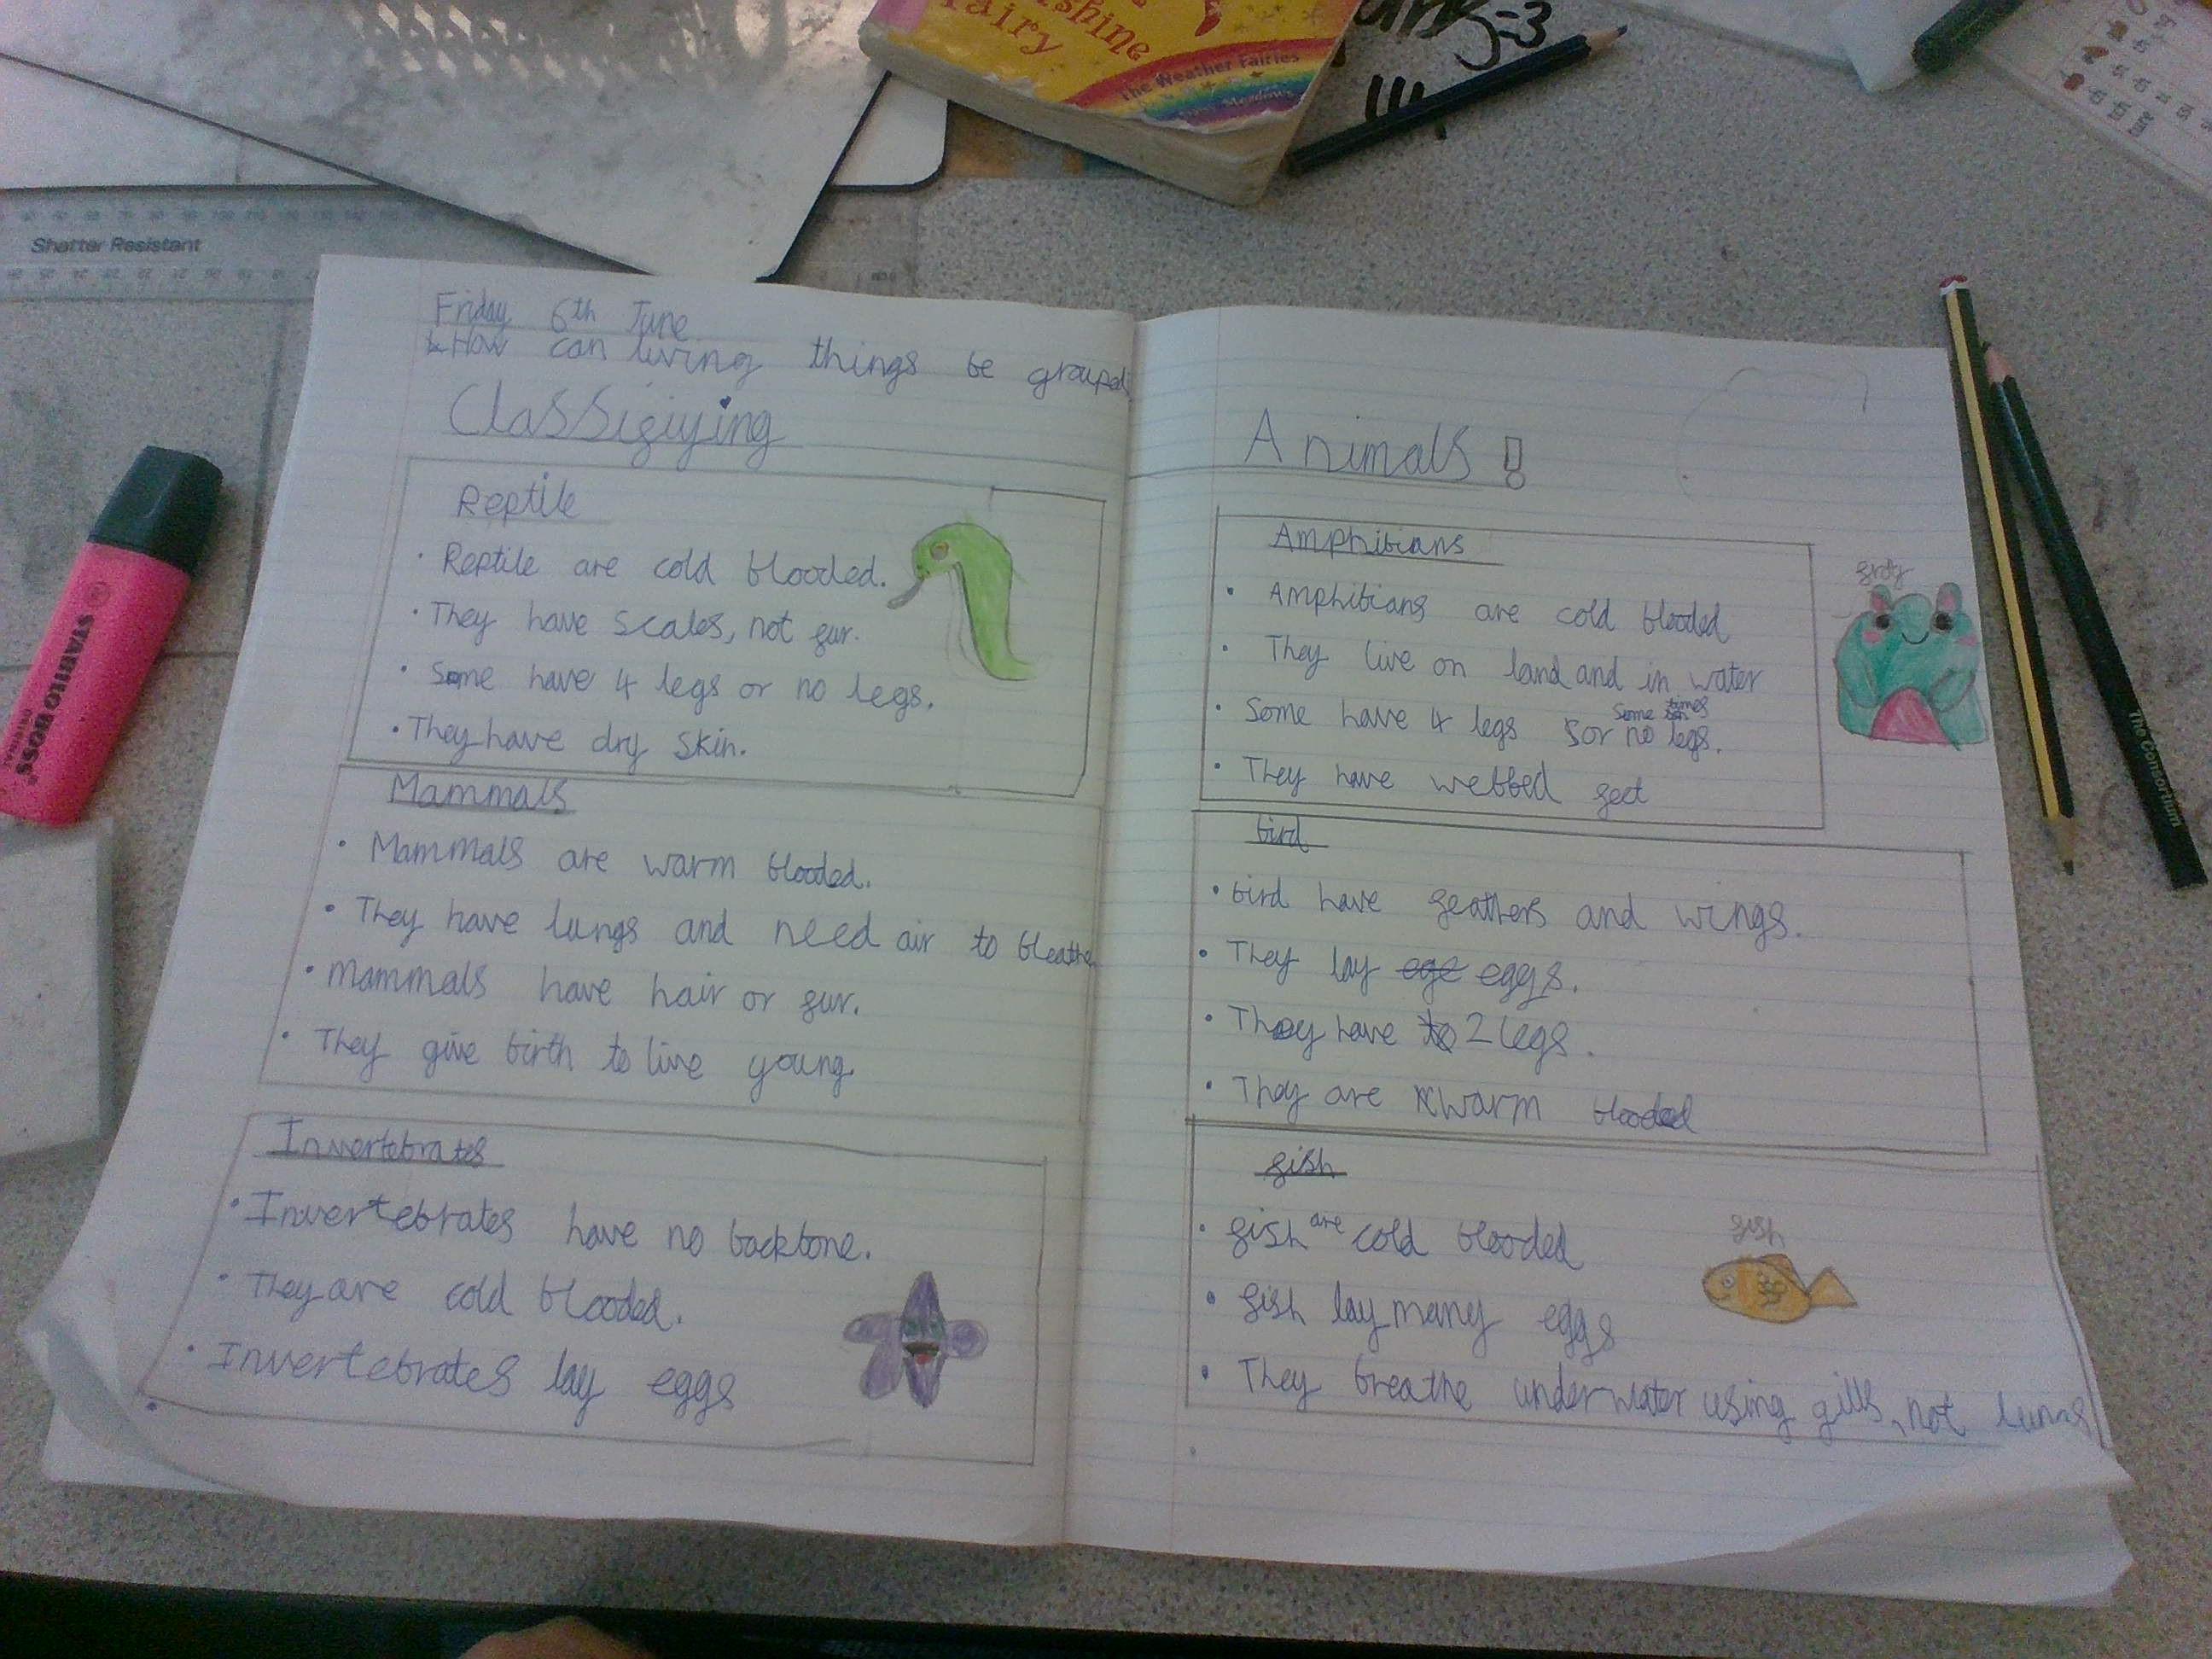 Sunshine
Fairy
The Weather Fairies
Meadows
=3
Shatter Resistant
STABILO BOSS
ORIGINAL
The Consortium
Friday 6th June
How can living things be grouped
Classifiying
Reptile
· Reptile are cold blooded.
· They have scales, not fur.
· Some have 4 legs or no legs.
· They have dry skin.
Mammals
· Mammals are warm blooded.
· They have lungs and need air to bleathe
· Mammals have hair or fur.
· They give birth to live young.
Invertebrates
· Invertebrates have no backbone.
· They are cold blooded.
· Invertebrates lay eggs
Animals!
Amphibians
· Amphibians are cold blooded
· They live on land and in water
· Some have 4 legs or some times no legs.
· They have webbed feet
frog
bird
· bird have feathers and wings.
· They lay ege eggs.
· They have to 2 legs.
· They are warm blooded
fish
· fish are cold blooded
· fish lay many eggs
· They breathe underwater using gills, not lungs
fish